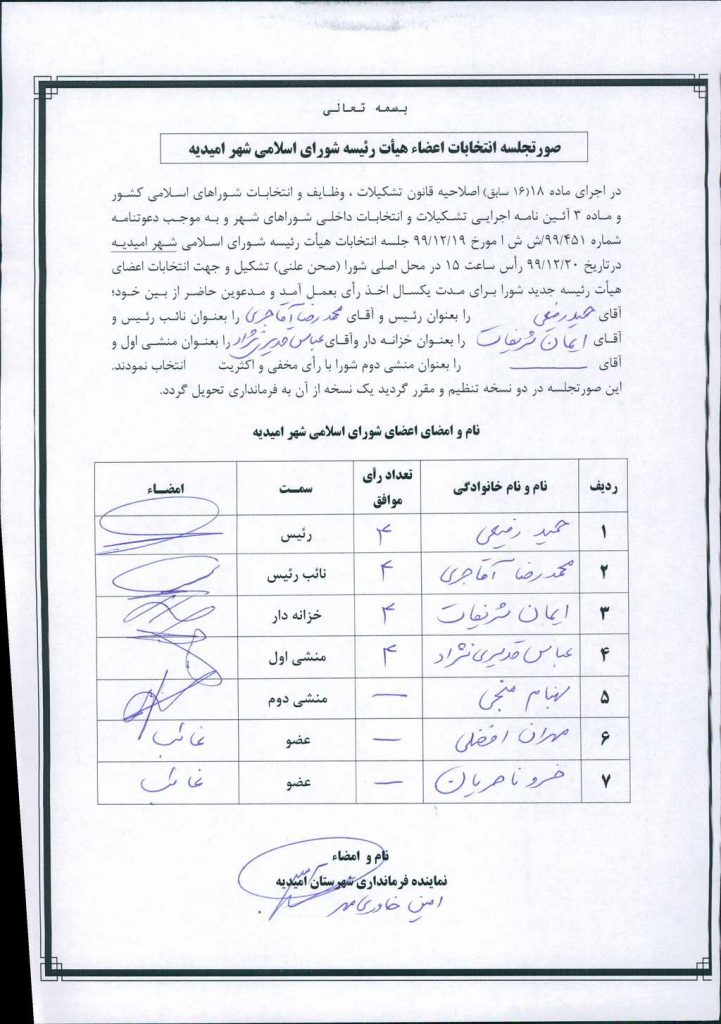 بسمه تعالی
صورتجلسه انتخابات اعضاء هیأت رئیسه شورای اسلامی شهر امیدیه
در اجرای ماده ۱۸(۱۶ سابق) اصلاحیه قانون تشکیلات ، وظایف و انتخابات شوراهای اسلامی کشور
و ماده ۳ آئین نامه اجرایی تشکیلات و انتخابات داخلی شوراهای شهر و به موجب دعوتنامه
شماره ۹۹/۴۵۱/ش ش ا مورخ ۹۹/۱۲/۱۹ جلسه انتخابات هیأت رئیسه شورای اسلامی شهر امیدیه
درتاریخ ۹۹/۱۲/۲۰ رأس ساعت ۱۵ در محل اصلی شورا (صحن علنی) تشکیل و جهت انتخابات اعضای
هیأت رئیسه جدید شورا برای مدت یکسال اخذ رأی بعمل آمد و مدعوین حاضر از بین خود؛
آقای حمید رفیعی را بعنوان رئیس و آقـای محمدرضا آقاجری را بعنوان نائب رئیس و
آقـای ایمان شریفات را بعنوان خزانه دار وآقای عباس قدیری نژاد را بعنوان منشی اول و
آقای ـــــ را بعنوان منشی دوم شورا با رأی مخفی و اکثریت انتخاب نمودند.
این صورتجلسه در دو نسخه تنظیم و مقرر گردید یک نسخه از آن به فرمانداری تحویل گردد.
نام و امضای اعضای شورای اسلامی شهر امیدیه
ردیف نام و نام خانوادگی تعداد رأی موافق سمـت امضـاء
۱ حمید رفیعی ۴ رئیس
۲ محمدرضا آقاجری ۴ نائب رئیس
۳ ایمان شریفات ۴ خزانه دار
۴ عباس قدیری نژاد ۴ منشی اول
۵ بهنام منجی — منشی دوم
۶ مهران افضلی — عضو غائب
۷ خسرو ناصریان — عضو غائب
نام و امضاء
نماینده فرمانداری شهرستان امیدیه
امین خاوری مهر